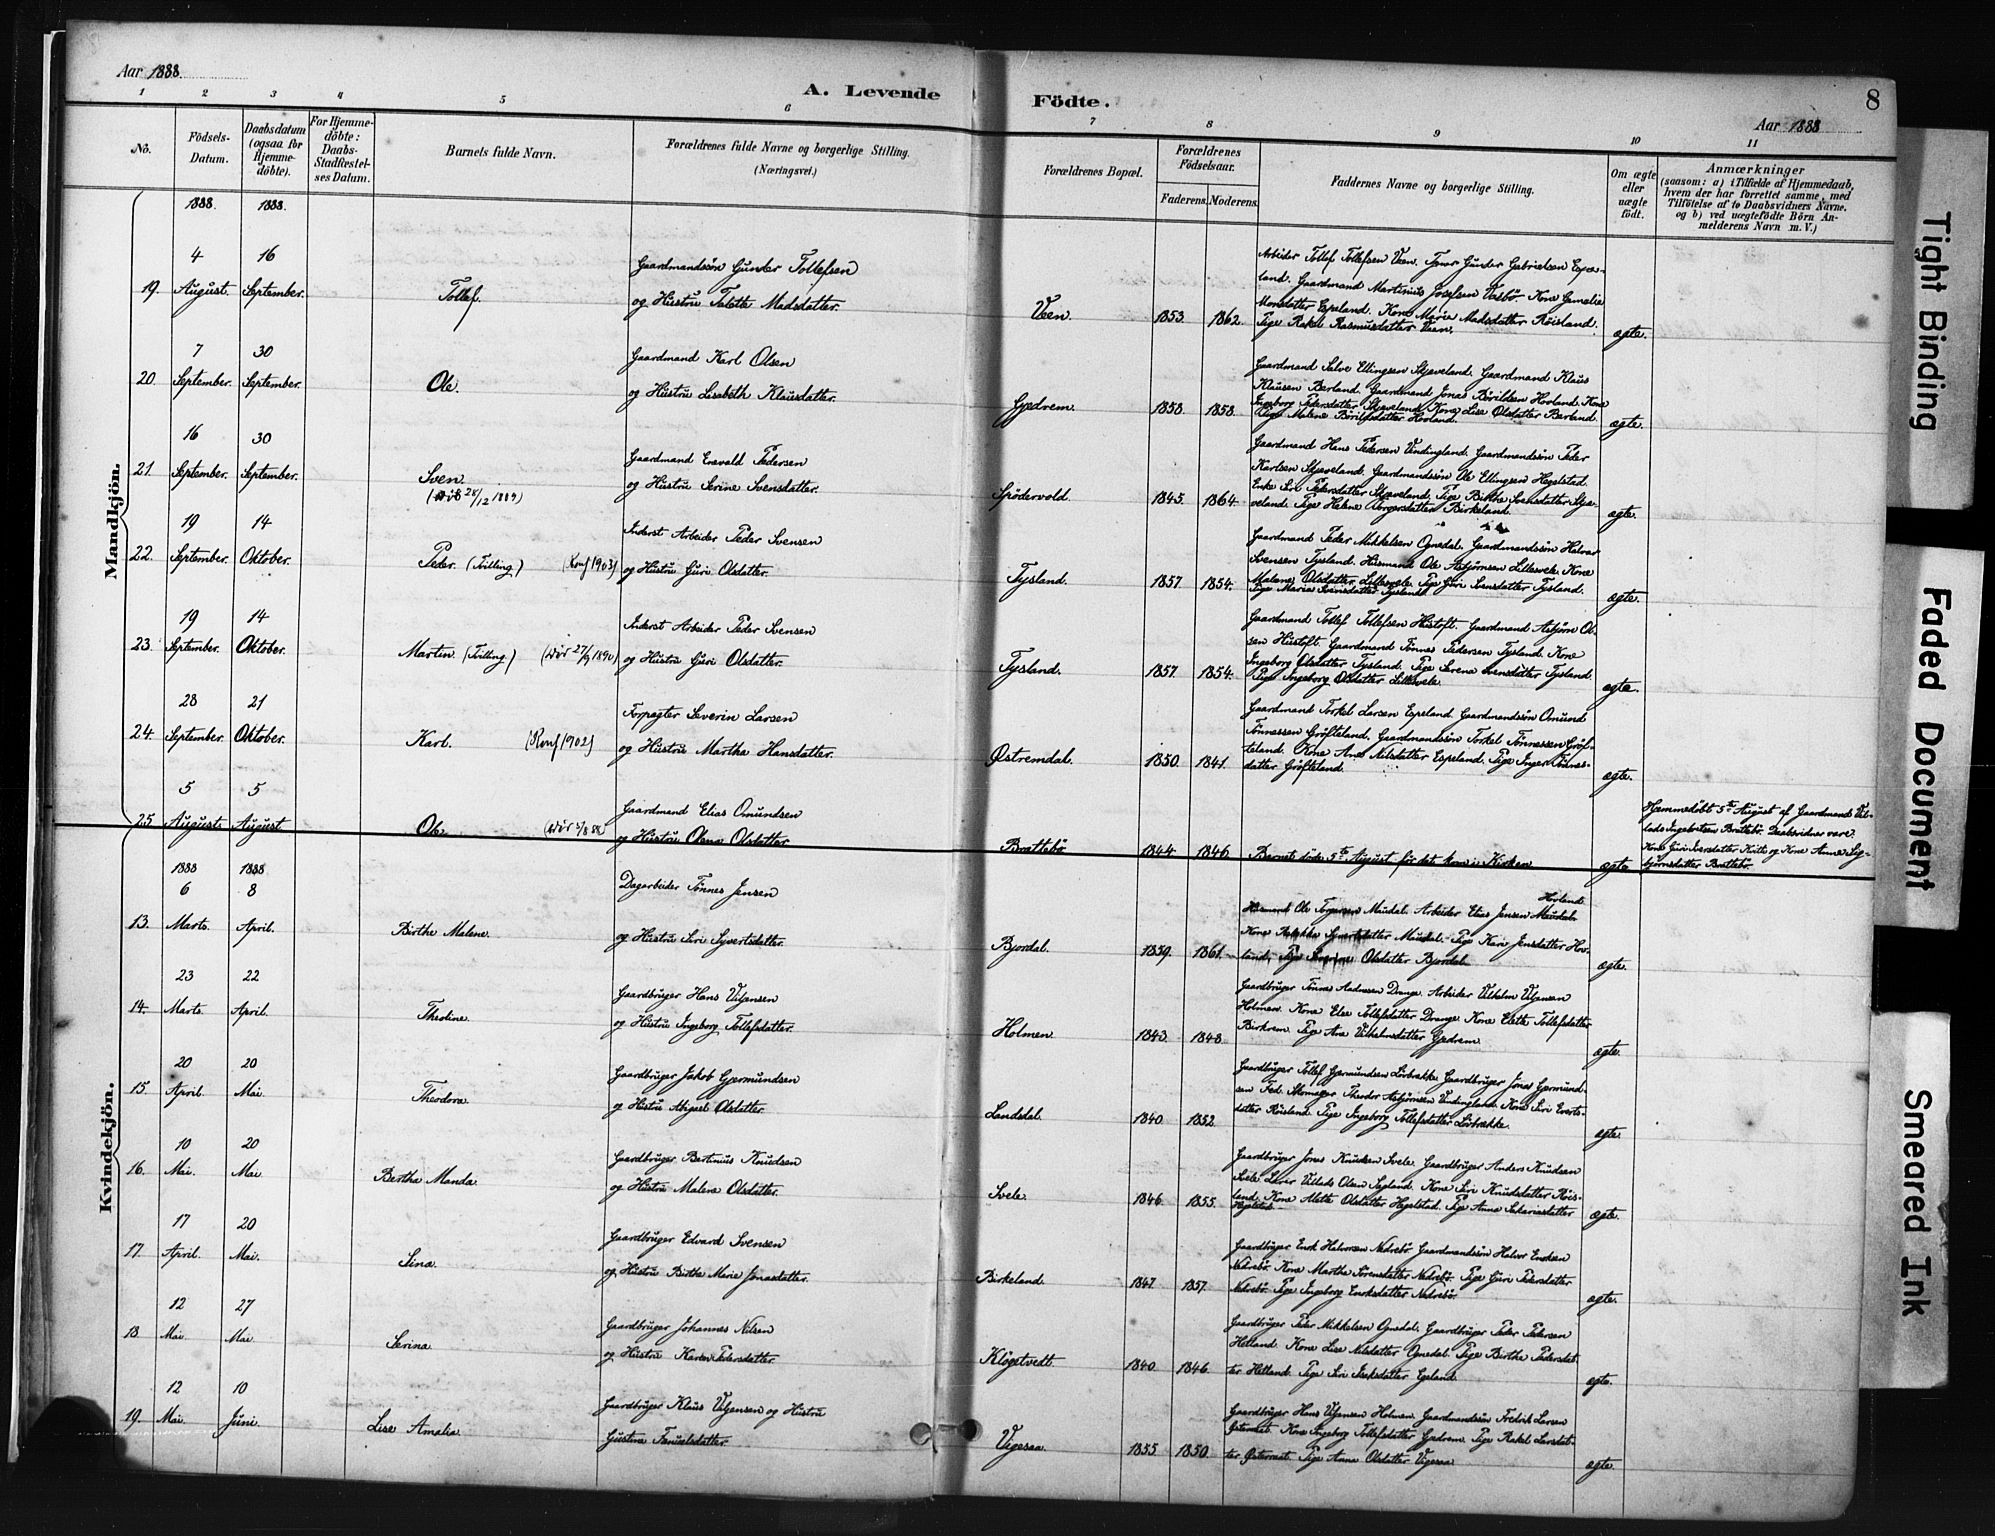 Aar 1888.
A. Levende Födte.
8
Aar 1888
1 2 3 4 5 6 7 8 9 10 11
No.
Födsels-Datum.
Daabsdatum (ogsaa for Hjemme-döbte).
For Hjemme-döbte: Daabs-Stadfæstel-ses Datum.
Barnets fulde Navn.
Forældrenes fulde Navne og borgerlige Stilling. (Næringsvei.)
Forældrenes Bopæl.
Forældrenes Födselsaar.
Faderens. Moderens.
Faddernes Navne og borgerlige Stilling.
Om ægte eller uægte födt.
Anmærkninger
(saasom: a) i Tilfælde af Hjemmedaab,
hvem der har forrettet samme, med
Tilföielse af to Daabsvidners Navne.
og b) ved uægtefödte Börn An-
melderens Navn m. V.)
Mandkjön.
1888. 1888.
19. 4 August. 16 September. Tollef. Gaardmandssön Gunder Tollefsen
og Hustru Talette Madsdatter. Veen. 1853. 1862.
Arbeider Tollef Tollefsen Veen. Gunder Gabrielsen Espe-
land. Gaardmand Martinius Josefsen Kone
Monsdatter Espeland. Kone Marie Madsdatter Röisland.
Pige Rakel Rasmusdatter Veen. ægte.
20. 7 September. 30 September. Ole. Gaardmand Karl Olsen
og Hustru Lisabeth Klausdatter. Gjedrem. 1858. 1858.
Gaardmand Salve Ellingsen Skjæveland. Gaardmand Klaus
Klausen Berland. Gaardmand Jonas Börildsen Hovland. Kone
Ingeborg Pedersdatter Skjæveland. Kone Lise Olsdatter Berland.
Pige Malene Börildsdatter Hovland. ægte.
21 16 September. 30 September. Sven. (död 28/12 1889) Gaardmand Enevald Pedersen
og Hustru Serine Svensdatter. Spödervold. 1845. 1864.
Gaardmand Hans Pedersen Vindingland. Gaardmandssön Peder
Karlsen Skjæveland. Gaardmandssön Ole Ellingsen Hegelstad.
Enke Siri Pedersdatter Skjæveland. Pige Birthe Svensdatter Skjæ-
veland. Pige Helene Birkeland. ægte.
22. 19 September. 14 Oktober. Peder. (Tvilling) (Konf 1903) Inderst Arbeider Peder Svensen
og Hustru Guri Olsdatter. Tysland. 1857 1854.
Gaardmand Peder Mikkelsen Ognedal. Gaardmandssön Halvor
Svensen Tysland. Husmand Ole Asbjörnsen Lillesvele. Kone
Malene Olsdatter Lillesvele. Pige Guri Svensdatter Tysland.
Pige Maria Svensdatter Tysland. ægte.
23. 19 September. 14 Oktober. Martin. (Tvilling) (död 27/9 1890) Inderst Arbeider Peder Svensen
og Hustru Guri Olsdatter. Tysland. 1857. 1854.
Gaardmand Tollef Tollefsen Hustoft. Gaardmand Asbjörn Ol-
sen Hustoft. Gaardmand Tönnes Pedersen Tysland. Kone
Ingeborg Olsdatter Tysland. Pige Serena Svensdatter Tysland.
Pige Ingeborg Olsdatter Lillesvele. ægte.
24. 28 September. 21 Oktober. Karl. (Konf 1902) Forpagter Severin Larsen
og Hustru Martha Hansdatter. Østremdal. 1850. 1841.
Gaardmand Torkel Larsen Espeland. Gaardmandssön Omund
Tönnessen Gröfteland. Gaardmandssön Torkel Tönnessen Gröf-
teland. Kone Ane Nilsdatter Espeland. Pige Inger Tönnes-
datter Gröfteland. ægte.
25 5 August. 5 August. Ole. Gaardmand Elias Omundsen
og Hustru Olena Olsdatter. Brattebö 1844 1846
Barnet döde 5te August för det kom i Kirken. ægte.
Hjemmedöbt 5te August af Gaardmand
Ingebretsen Brattebö. Daabsvidner vare:
Kone Guri og Kone Anne Sig-
björnsdatter Brattebö.
Kvindekjön.
1888 1888
13. 6 Marts. 8 April. Birthe Malene. Dagarbeider Tönnes Jensen
og Hustru Siri Syvertsdatter. Bjordal. 1859. 1861.
Husmand Ole Torgersen Mausdal. Arbeider Elias Jensen Hovland.
Kone datter Mausdal. Pige Kari Jensdatter Hov-
land. Pige Olsdatter Bjordal. ægte.
14. 23 Marts. 22 April. Theoline. Gaardbruger Hans Uljansen
og Hustru Ingeborg Tollefsdatter. Holmen. 1843. 1848.
Gaardbruger Tönnes Andersen Drange. Arbeider Vilhelm Uljansen
Holmen. Kone Else Tollefsdatter Drange. Kone Elette Tollefsdatter
Birkrem. Pige Ane Vilhelmsdatter Gjedrem. ægte.
15. 20 April. 20 Mai. Theodora. Gaardbruger Jakob Gjermundsen
og Hustru Abigael Olsdatter. Landsdal. 1840. 1852.
Gaardbruger Tollef Gjermundsen Lövbrække. Gaardbruger Jonas Gjermund-
sen Fed. Skomager Theodor Asbjörnsen Vindingland. Kone Siri Everts-
datter Röisland. Pige Ingeborg Tollefsdatter Lövbrække. ægte.
16. 10 Mai. 20 Mai. Bertha Manda. Gaardbruger Bertinius Knudsen
og Hustru Malene Olsdatter. Svele. 1846. 1855.
Gaardbruger Jonas Knudsen Svele. Gaardbruger Anders Knudsen
Svele. Lærer Olsen Kone Siri Knudsdatter Röis-
land. Kone Alette Olsdatter Hegelstad. Pige Anne Sakariasdatter
Hegelstad. ægte.
17. 17 April. 20 Mai. Sina. Gaardbruger Edvard Svensen
og Hustru Birthe Marie Jonasdatter. Birkeland. 1847. 1857.
Gaardbruger Enok Halvorsen Nedrebö. Gaardmandssön Halvor Enoksen
Nedrebö. Kone Martha Sörensdatter Nedrebö. Pige Guri Pedersdatter
Nedrebö. Pige Ingeborg Enoksdatter Nedrebö. ægte.
18. 12 Mai. 27 Mai. Serina. Gaardbruger Johannes Nilsen
og Hustru Karen Pedersdatter. Klögetvedt. 1840. 1846.
Gaardbruger Peder Mikkelsen Ognedal. Gaardbruger Peder Pedersen
Hetland. Kone Lise Nilsdatter Ognedal. Pige Birthe Pedersdat-
ter Hetland. Pige Siri Egeland. ægte.
19. 12 Mai. 10 Juni. Lise Amalia. Gaardbruger Klaus Uljansen og Hustru
Gustina Danielsdatter. Vigesaa. 1855. 1850.
Gaardbruger Hans Uljansen Holmen. Gaardmandssön Fredrik Larsen
Kone Ingeborg Tollefsdatter Gjedrem. Pige Rakel Larsdat-
ter Pige Anna Olsdatter Vigesaa. ægte.
Tight Binding
Faded Document
Smeared Ink